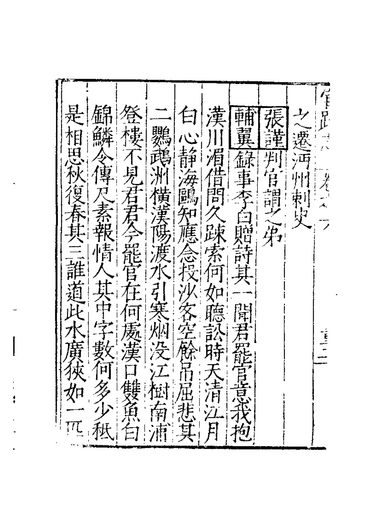 之遷沔州刺史
張謹判官謂之弟
輔翼錄事李白贈詩其一聞君罷官意我抱
漢川湄借問久踈索何如聽訟時天清江月
白心靜海鷗知應念投沙客空餘吊屈悲其
二鸚鵡洲橫漢陽渡水引寒烟没江樹南浦
登樓不見君君今罷官在何處漢口雙魚白
錦鱗令傳尺素報情人其中字數何多少秪
是相思秋復春其三誰道此水廣狹如一匹